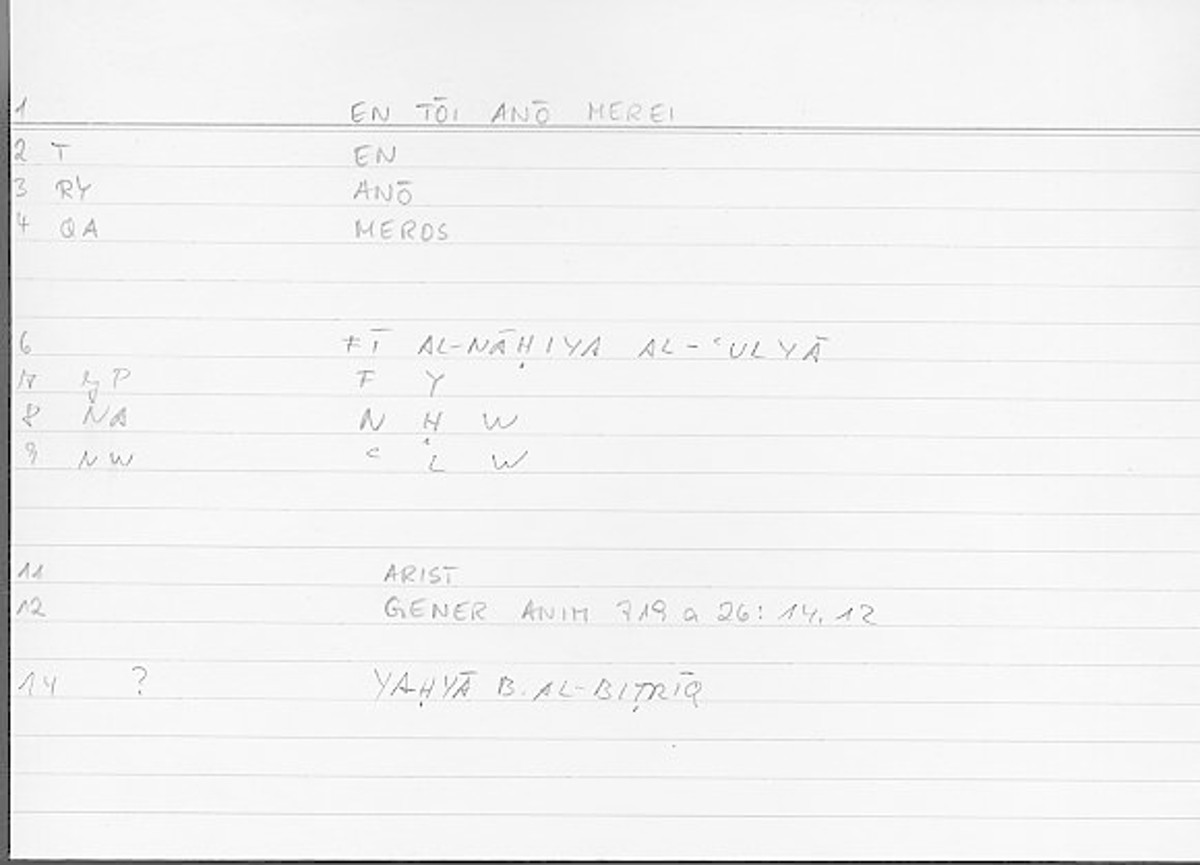 1 EN TŌI ANŌ MEREI
2 T EN
3 RY ANŌ
4 QA MEROS
6 FĪ AL-NĀḤIYA AL-ʿULYĀ
7 P F Y
8 NA N Ḥ W
9 NW ʿ L W
11 ARIST
12 GENER ANIM 719 a 26: 14.12
14 ? YAḤYĀ B. AL-BIṬRĪQ